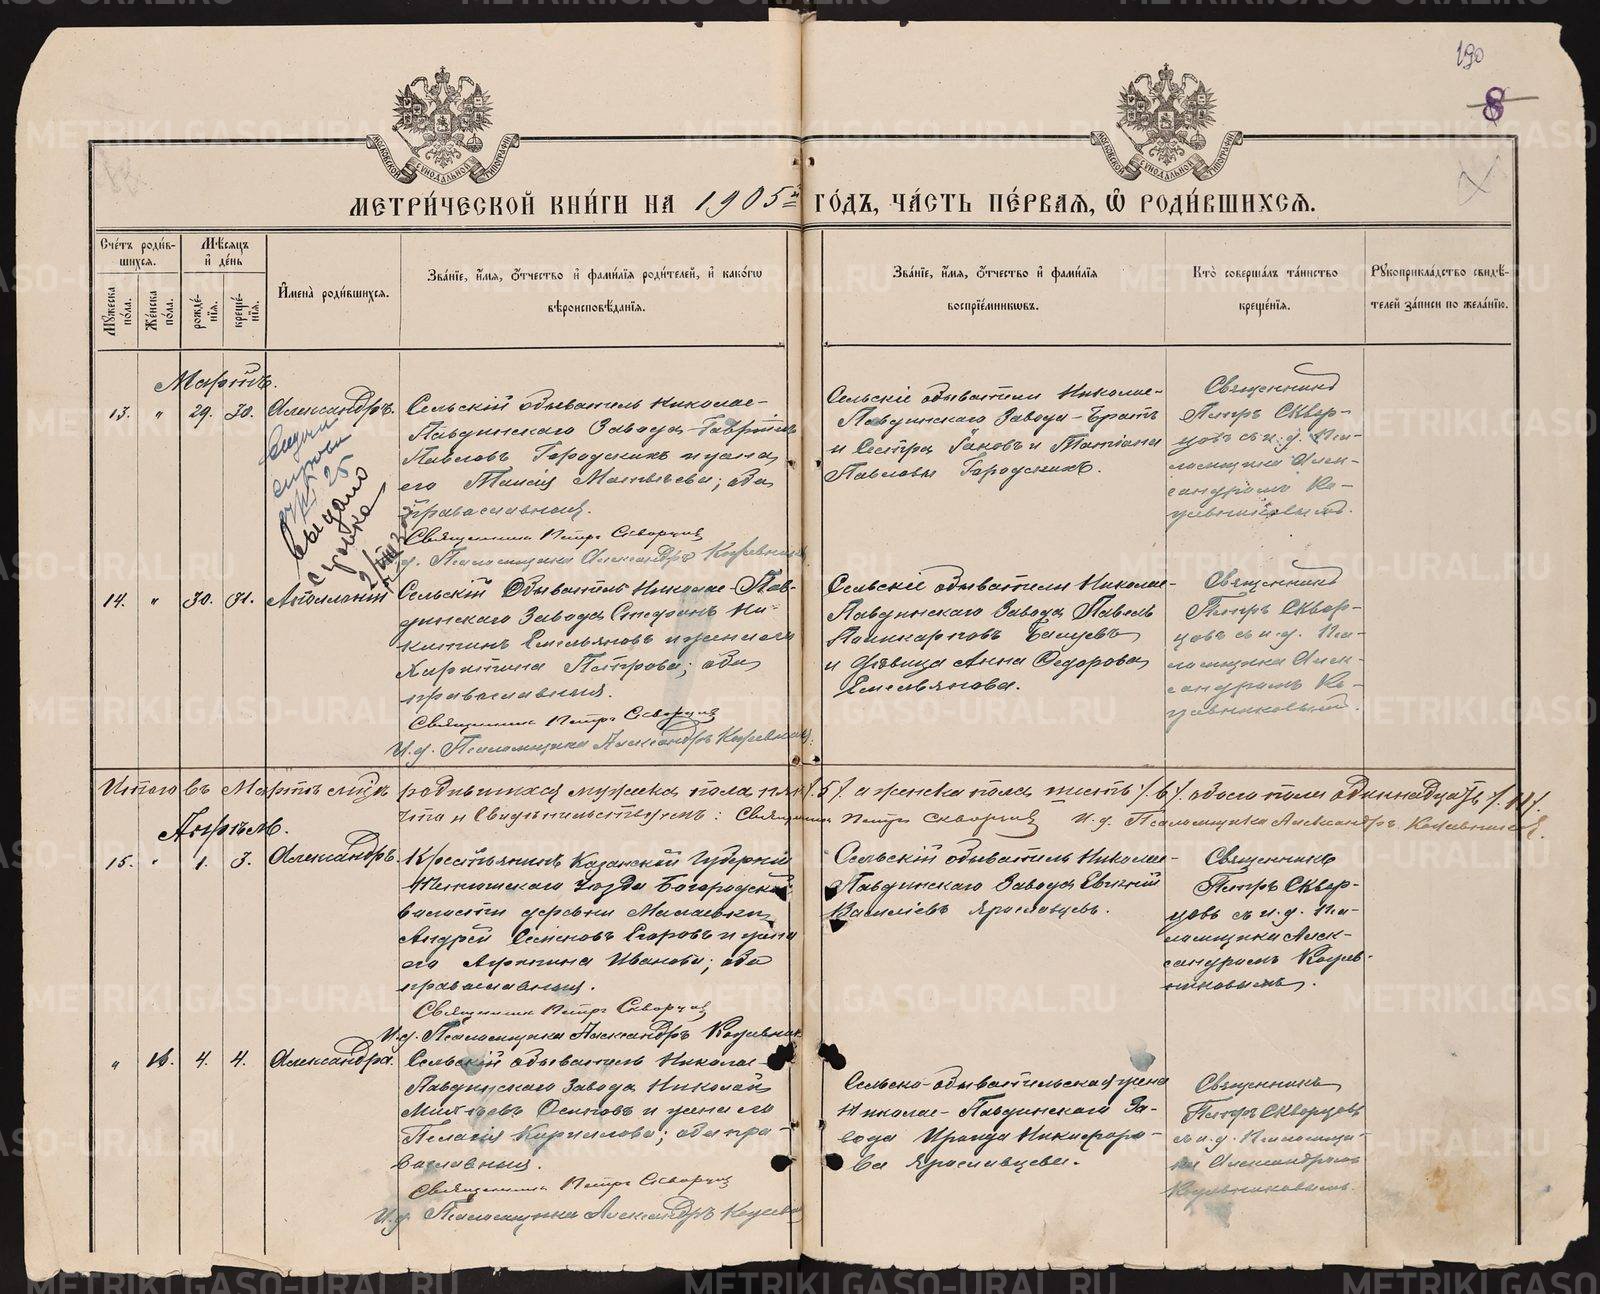 190
8
МЕТРИ́ЧЕСКОЙ КНИ́ГИ НА 1905й ГО́ДЪ, ЧА́СТЬ ПЕ́РВАЯ, Ѡ РОДИ́ВШИХСЯ.
Сче́тъ роди́вшихся.
Му́жеска по́ла.
Же́нска по́ла.
Мѣ́сяцъ и҆ де́нь
рожде́нїя.
креще́нїя.
И҆мена̀ роди́вшихся.
Зва́нїе, и҆́мя, ѻ҆́тчество и҆ фами́лїя роди́телей, и҆ како́гѡ
вѣроисповѣ́данїя.
Зва́нїе, и҆́мя, ѻ҆́тчество и҆ фами́лїя
воспрїе́мникѡвъ.
Кто̀ соверша́лъ та́инство
креще́нїя.
Рꙋкоприкла́дство свидѣ́-
телей за́писи по жела́нїю.
Мартъ.
13. " 29. 30. Александръ.
выдано
Сельскій обыватель Николае-
Павдинскаго Завода Гавріилъ
Павловъ Городскихъ и жена
его Таисія Матвѣева; оба
православныя.
Священникъ Петръ Скворцовъ
И.д. Псаломщика Александръ Кожевник
Сельскіе обыватели Николае-
Павдинскаго Завода - Братъ
и Сестра Іаковъ и Татіана
Павловы Городскихъ.
Священникъ
Петръ Сквор-
цовъ съ и. д. Пса-
ломщика Алек-
сандромъ Ко-
жевниковымъ.
14. " 30. 31. Аполлоній
Сельскій Обыватель Николае-Пав-
динскаго Завода Стефанъ Ни-
китинъ Емельяновъ и жена его
Харитина Петрова; оба
православныя.
Священникъ Петръ Скворцовъ
И.д. Псаломщика Александръ Кожевник
Сельскіе обыватели Николае-
Павдинскаго Завода Павелъ
Поликарповъ
и Дѣвица Анна Ѳедорова
Емельянова.
Священникъ
Петръ Сквор-
цовъ съ и. д. Пса-
ломщика Алек-
сандромъ Ко-
жевниковымъ.
Итого въ Мартѣ мѣсяцѣ родившихся мужеска пола пять /5/. а женска пола шесть /6/. обоего пола одиннадцать /11/.
Что и Свидѣтельствуемъ: Священникъ Петръ Скворцовъ И.д. Псаломщика Александръ Кожевниковъ.
Апрѣль.
15. " 1. 3. Александръ.
Крестьянинъ Казанской Губерніи
Тетюшскаго Уѣзда Богородской
волости деревни
Андрей Егоровъ и жена
его Иванова; оба
православныя.
Священникъ Петръ Скворцовъ
И.д. Псаломщика Александръ Кожевник
Сельскій обыватель Николае-
Павдинскаго Завода Евгеній
Василіевъ Ярославцевъ.
Священникъ
Петръ Сквор-
цовъ съ и. д. Пса-
ломщика Алек-
сандромъ Кожев-
никовымъ.
" 16. 4. 4. Александра.
Сельскій обыватель Николае-
Павдинскаго Завода Николай
Осиповъ и жена его
Пелагія Кириллова; оба пра-
вославныя.
Священникъ Петръ Скворцовъ
И.д. Псаломщика Александръ Кожевн
Сельско-обывательская жена
Николае-Павдинскаго За-
вода Ираида Никифоро-
ва Ярославцева.
Священникъ
Петръ Скворцовъ
съ и.д. Псаломщи-
ка Александромъ
Кожевниковымъ.